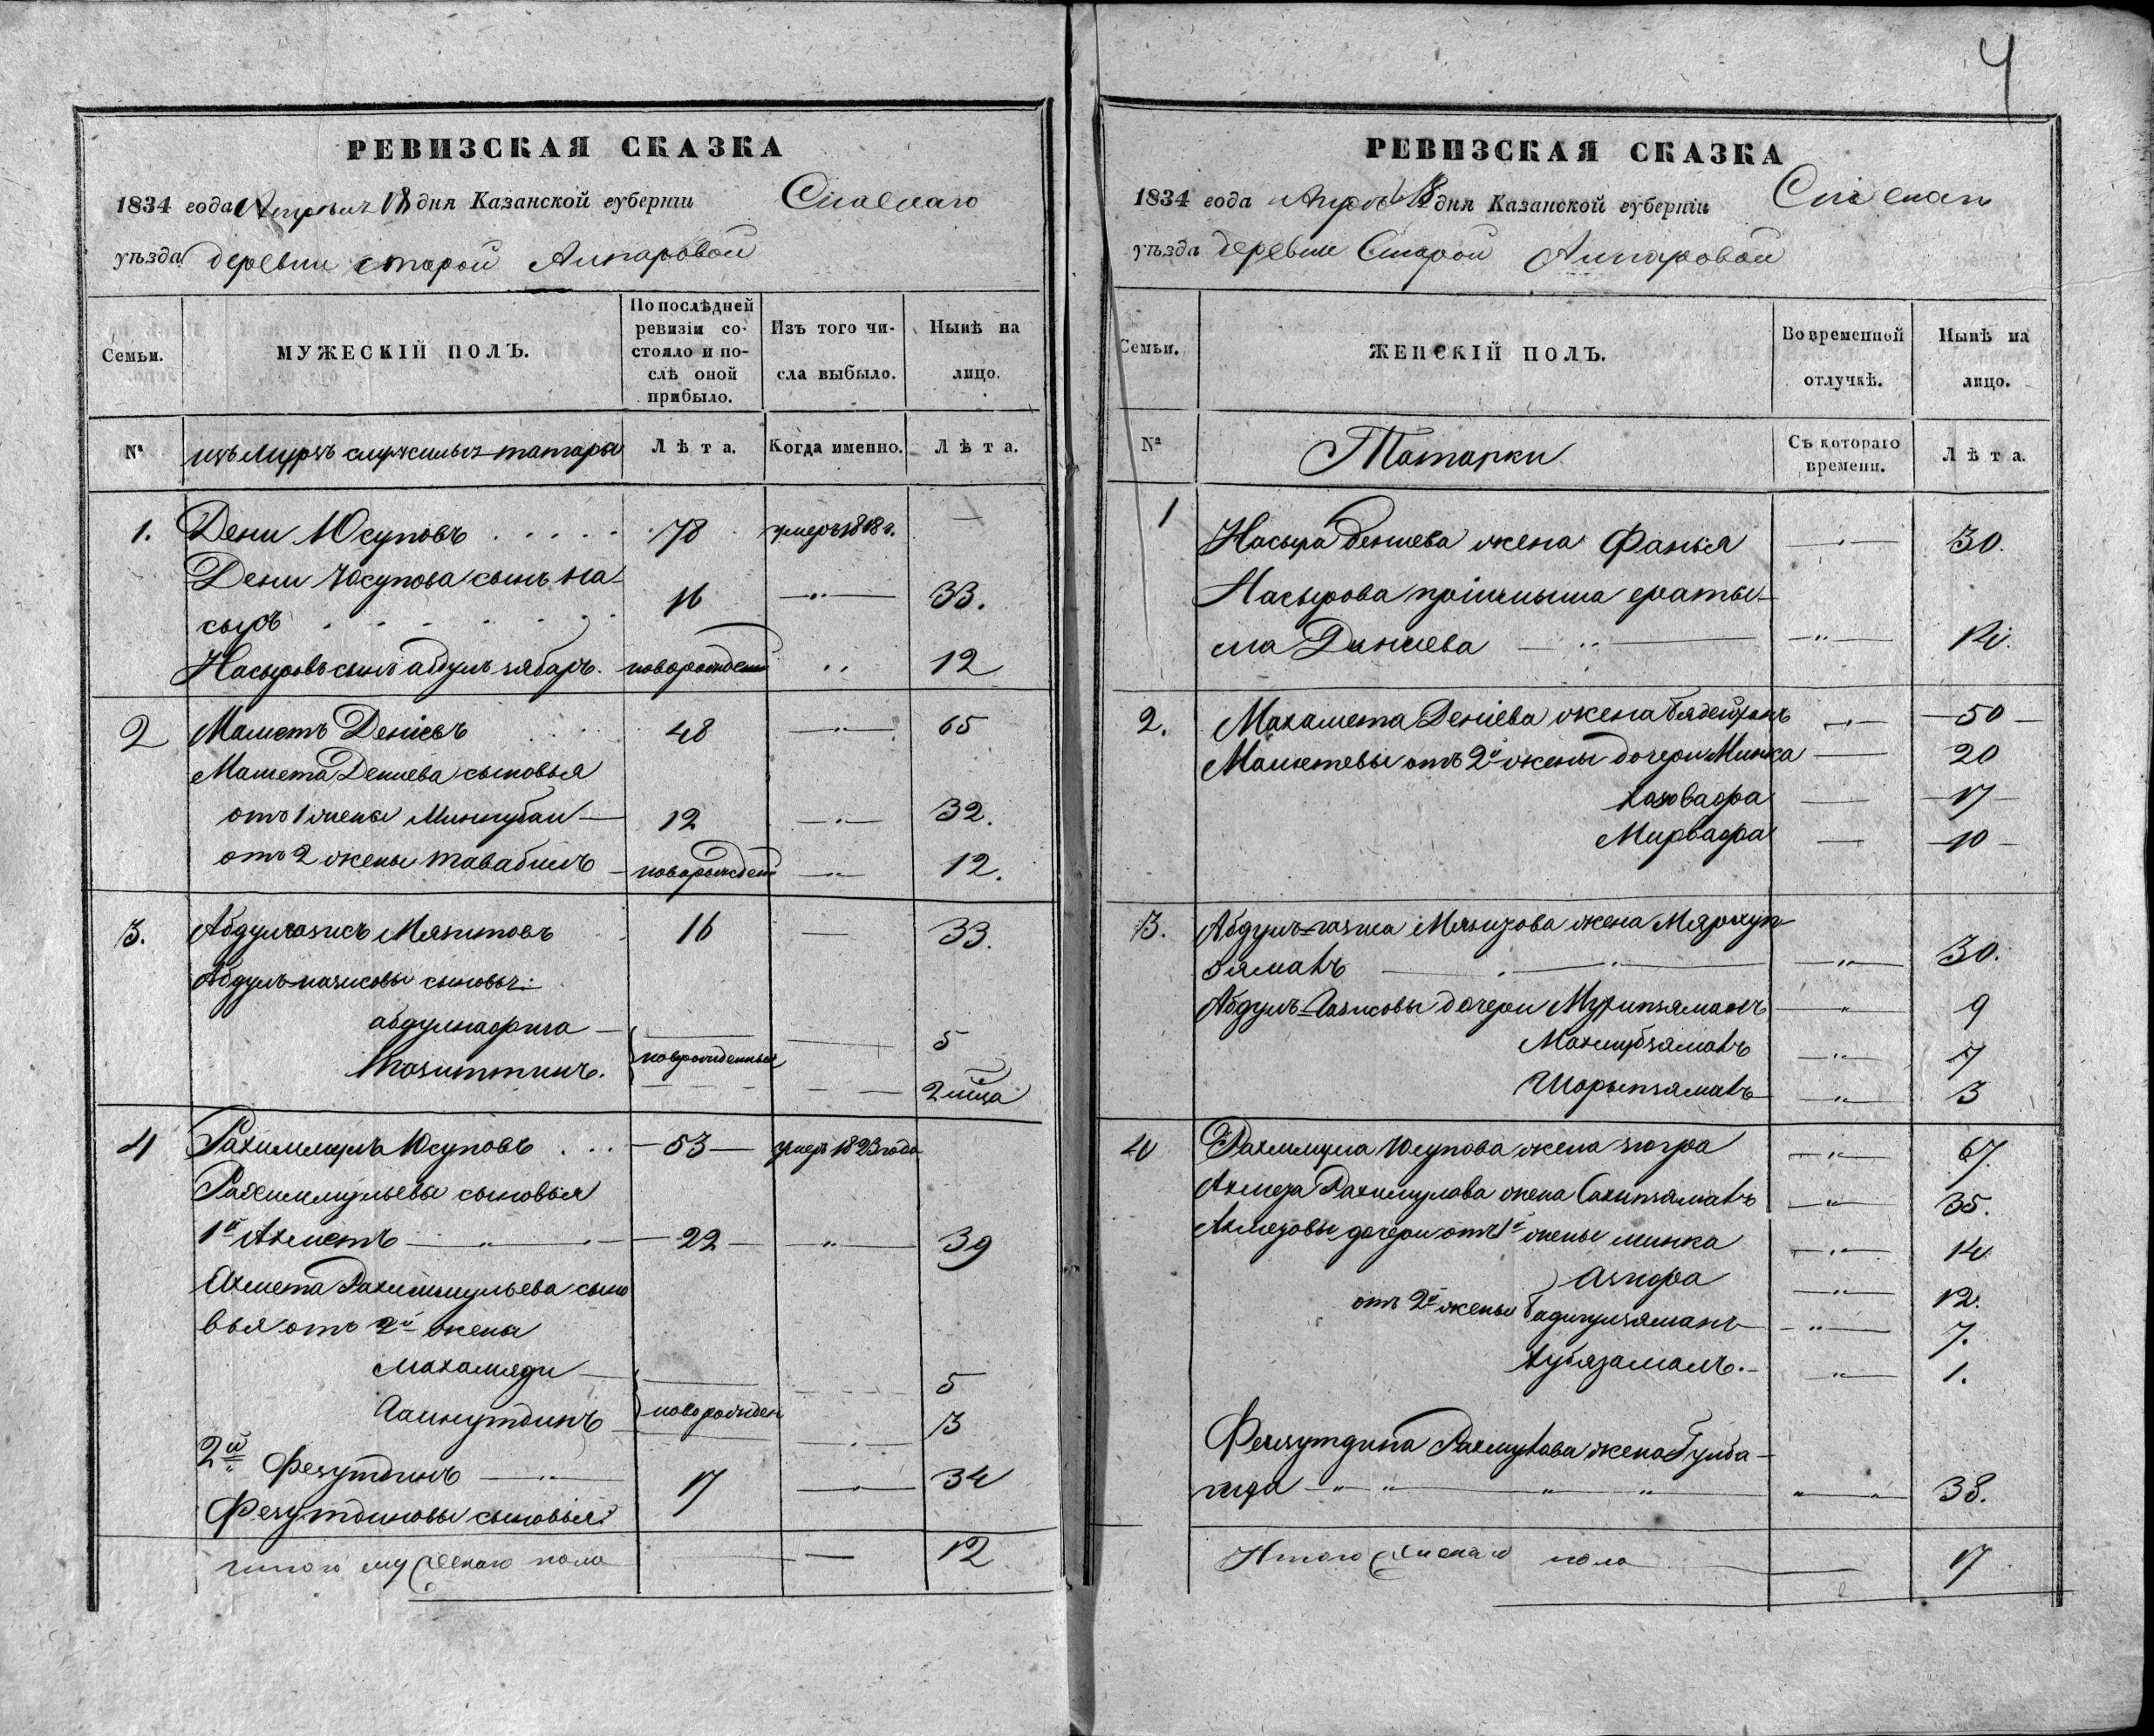 4
РЕВИЗСКАЯ СКАЗКА
1834 года Апреля 18 дня Казанской губерніи Спаскаго
уѣзда деревни старой Ампаровой
Семьи.
МУЖЕСКІЙ ПОЛЪ.
По послѣдней ревизіи со-
стояло и по-
слѣ оной
прибыло.
Изъ того чи-
сла выбыло.
Нынѣ на
лицо.
№
изъ Мурзъ служилыхъ татары
Лѣта.
Когда именно.
Лѣта.
1. Дени Юсуповъ 78 умеръ 1818 г. —
Дени Юсупова сынъ На-
сыръ 16 —"— 33.
Насыровъ сынъ абдулъ зябаръ. новорожден " 12
2 Маметъ Деніевъ 48 —"— 65
Мамета Дениева сыновья
отъ 1 жены Миннубаи — 12 —"— 32.
отъ 2 жены тавабилъ — новорожден —"— 12.
3. Абдулгазисъ Мязитовъ 16 — 33.
Абдулъ-газисовы сыновья:
абдулнафига — 5
новорожденныя
2 мца
4 Рахимкулъ Юсуповъ — 53 — умеръ 1823 года
Рахимкульевы сыновья
1й Ахметъ — " — 22 — " — 39
Ахмета Рахимкульева сыно
вья отъ 2й жены
Махамяди — 5
новорожден
Аинутдинъ 3
2й Фезутдинъ — 17 — 34
Фезутдиновы сыновья:
итого мужескаго пола — 12
РЕВИЗСКАЯ СКАЗКА
1834 года Апреля 18 дня Казанской губерніи Спаскаго
уѣзда деревни Старой Ампаровой
Семьи.
ЖЕНСКІЙ ПОЛЪ.
Во временной
отлучкѣ.
Нынѣ на
лицо.
№
Татарки
Съ котораго
времени.
Лѣта.
1 Насыра Дениева жена Фанья —"— 30.
Насырова
Дениева —"—
2. Махамета Деніева жена Бядейжанъ —"— 50 —
Маметевы отъ 2й жены дочери Минка — 20
— 17 —
Мирвафа — 10 —
3. Абдулъ-газиса Мязитова жена
зямалъ — " — 30.
Абдулъ-Газисовы дочери —"— 9
Махиубзямалъ —"— 7
Шарыпзямалъ —"— 3
4 Рахимкула Юсупова жена зюгра —"— 67.
Ахмета Рахимкулова жена Сахипзямалъ —"— 35.
Ахметовы дочери отъ 1й жены минка —"— 14
Азифа —"— 12.
отъ 2й жены Бадигулзяманъ —"— 7.
Хубязамалъ. —"— 1.
Фезутдина Рахимкулова жена Гулба-
гида — " — " — 38.
Итого женскаго пола — 17